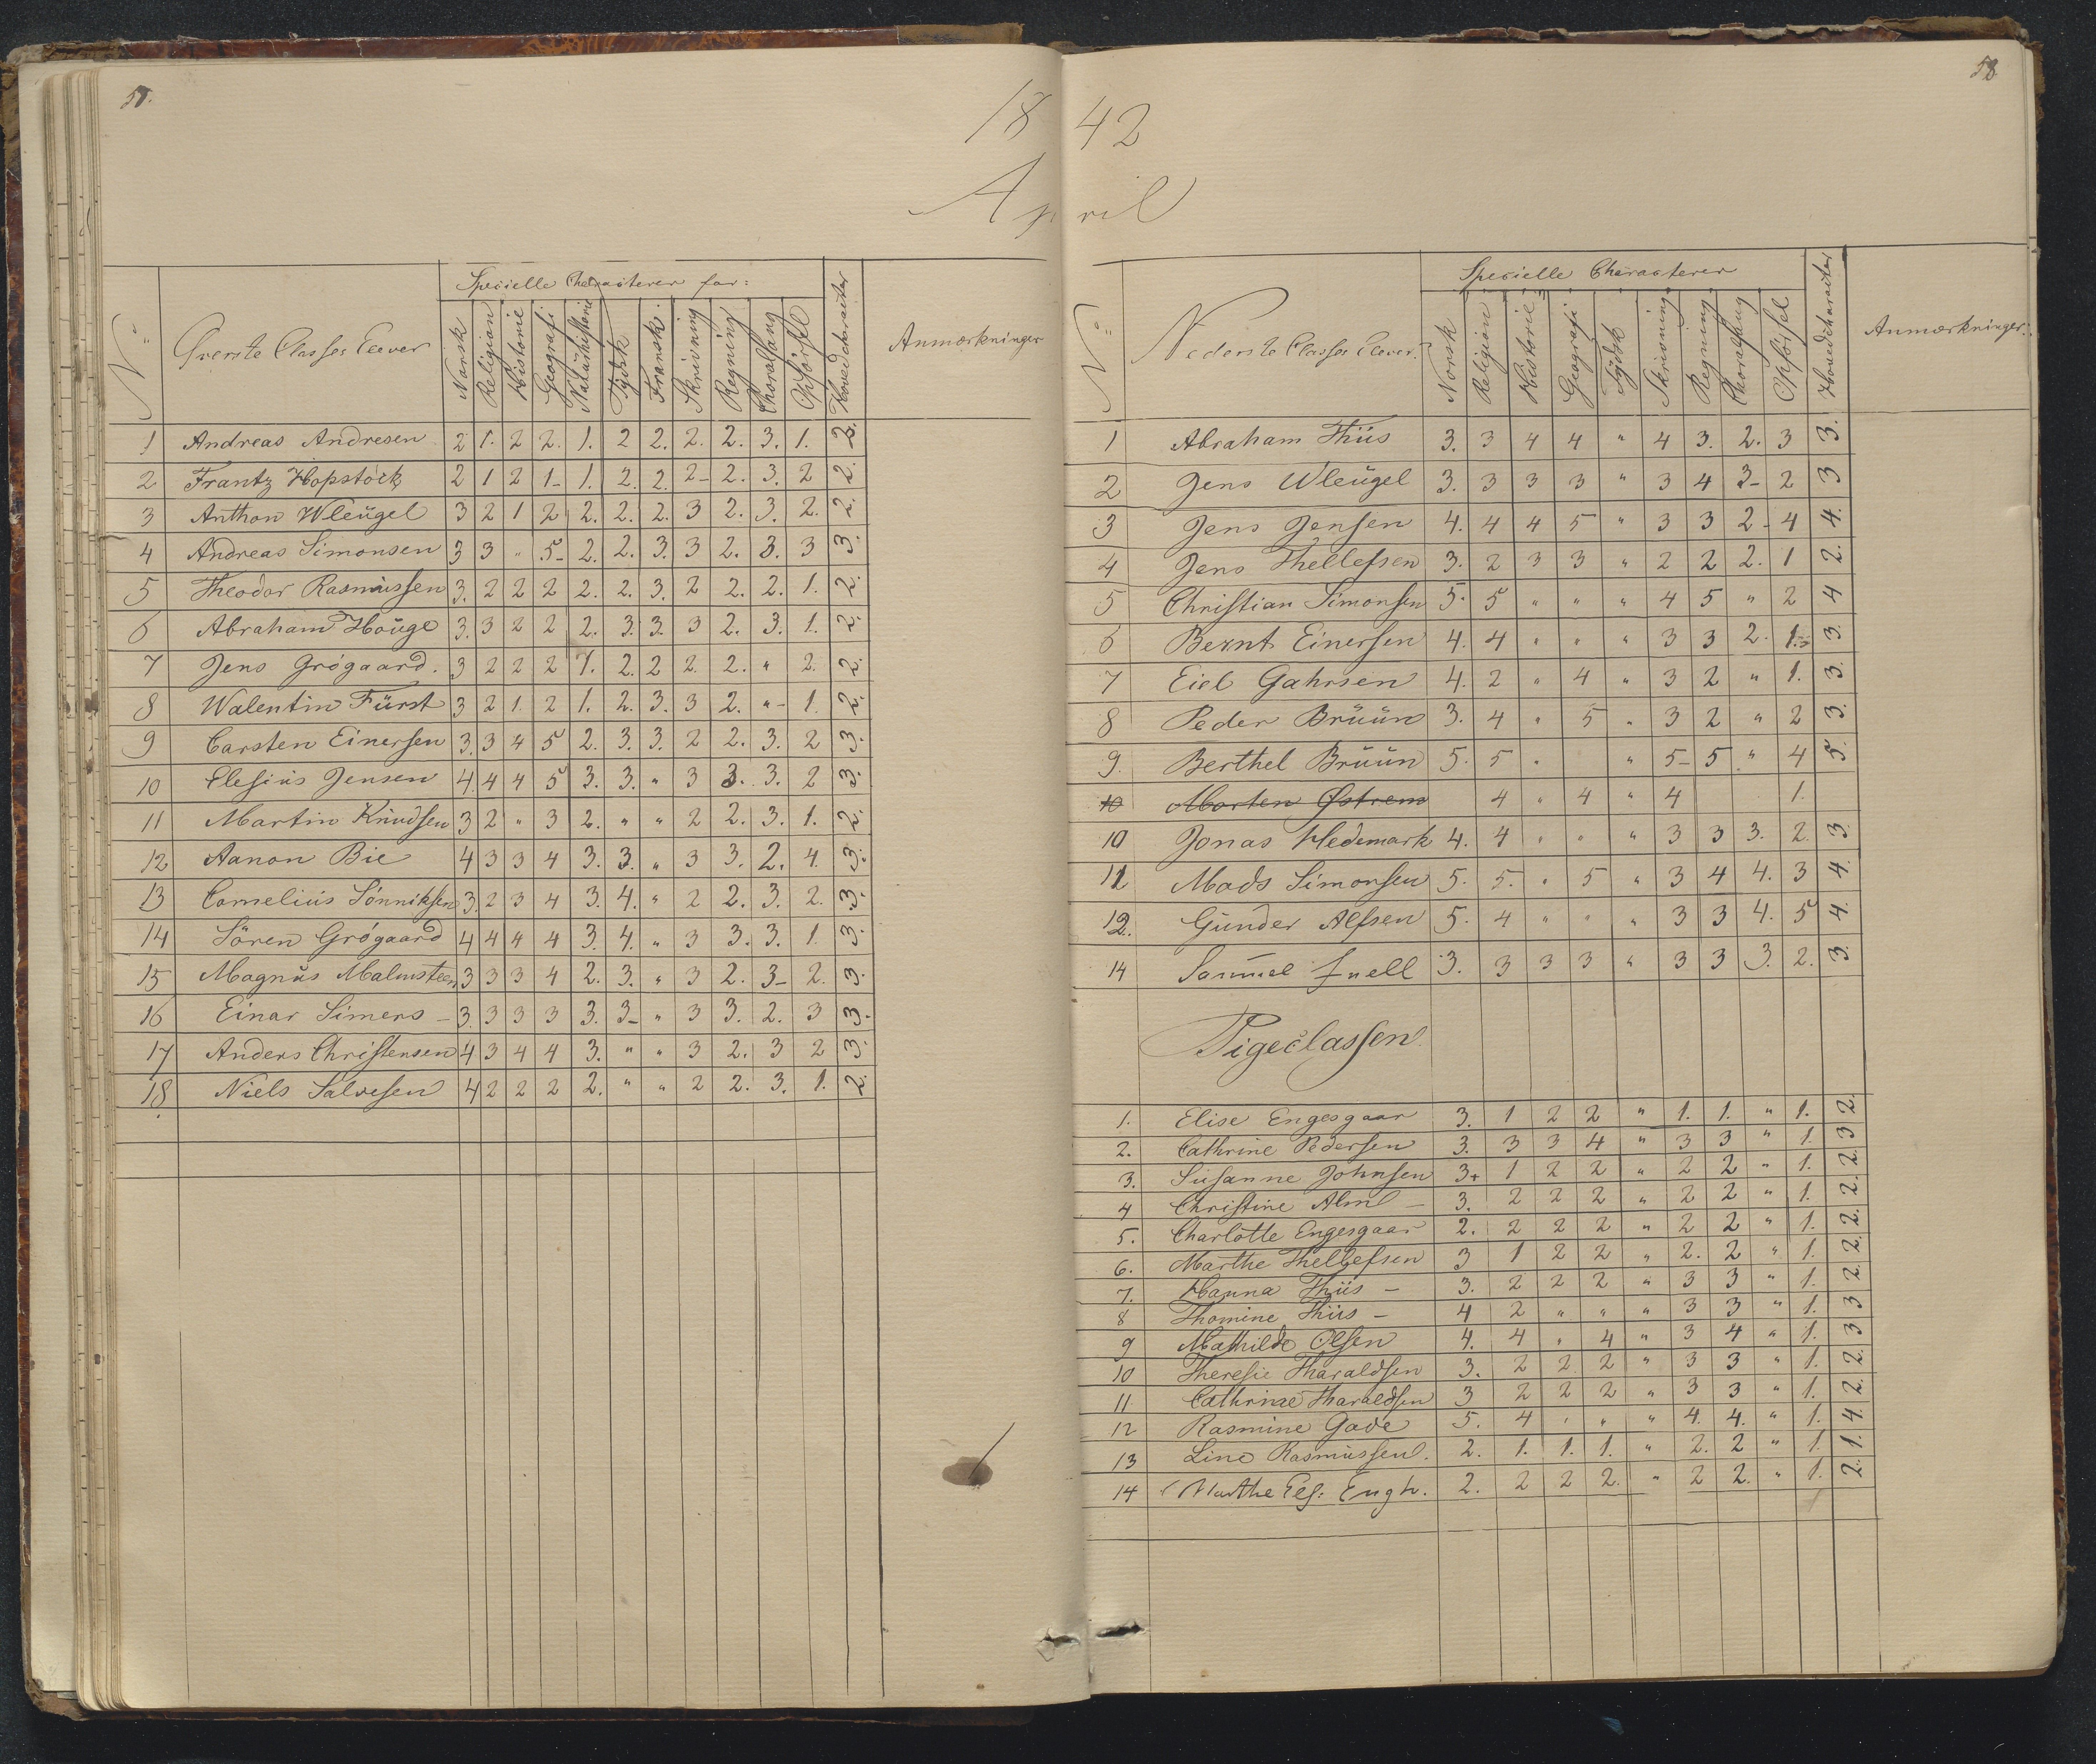 57.
18
April
Specielle Characterer for:
No Øverste Classes Elever Norsk Religion Historie Geografi Naturhistorie Tydsk Fransk Skrivning Regning Choralsang Opførsel Hovedcharacter Anmærkninger
1 Andreas Andresen 2 1. 2 2. 1. 2 2. 2. 2. 3. 1. 2.
2 Frantz Hopstock 2 1 2 1- 1. 2. 2. 2- 2. 3. 2 2.
3 Anthon Wleugel 3 2 1 2 2. 2. 2. 3 2. 3. 2. 2.
4 Andreas Simonsen 3 3 " 5- 2. 2. 3. 3 2. 3. 3 3.
5 Theodor Rasmussen 3. 2 2 2 2. 2. 3. 2 2. 2. 1. 2.
6 Abraham Houge 3. 3 2 2 2. 3. 3. 3 2. 3. 1. 2.
7 Jens Grógaard. 3 2 2 2 1. 2. 2 2. 2. " 2. 2.
8 Walentin Fürst 3 2 1. 2 1. 2. 3. 3 2. "- 1. 2.
9 Carsten Einersen 3. 3 4 5 2. 3. 3. 2 2. 3. 2 3.
10 Elesius Jensen 4. 4 4 5 3. 3. " 3 3. 3. 2 3.
11 Martin Knudsen 3 2 " 3 2. " " 2 2. 3. 1. 2.
12 Aanon Bie 4 3 3 4 3. 3. " 3 3. 2. 4. 3.
13 Cornelius Sónniksen 3. 2 3 4 3. 4. " 2 2. 3. 2. 3.
14 Sören Grógaard 4 4 4 4 3. 4. " 3 3. 3. 1. 3.
15 Magnus Malmsteen 3 3 3 4 2. 3. " 3 2. 3- 2. 3.
16 Einar Simers - 3. 3 3 3 3. 3- " 3 3. 2. 3 3.
17 Anders Christensen 4 3 4 4 3. " " 3 2. 3 2 3.
18 Niels Salvesen 4 2 2 2 2. " " 2 2. 3. 1. 2.
58
42
Specielle Characterer
No Nederste Classes Elever. Norsk Religion Historie Geografi Tydsk Skrivning Regning Choralsang Opførsel Hovedcharacter Anmærkninger.
1 Abraham Thiis 3. 3 4 4 " 4 3. 2. 3 3.
2 Jens Wleugel 3. 3 3 3 " 3 4 3- 2 3
3 Jens Jensen 4. 4 4 5 " 3 3 2- 4 4.
4 Jens Thellefsen 3. 2 3 3 " 2 2 2. 1 2.
5 Christian Simonsen 5. 5 " " " 4 5 " 2 4
6 Bernt Einersen 4. 4 " " " 3 3 2. 1. 3.
7 Eiel Gahrsen 4. 2 " 4 " 3 2 " 1. 3.
8 Peder Brüün 3. 4 " 5 " 3 2 " 2 3.
9. Berthel Brüün 5. 5 " " 5- 5 " 4 5.
10 Morten Østrem 4 " 4 " 4 1.
10 Jonas Hedemark 4. 4 " " " 3 3 3. 2. 3.
11 Mads Simonsen 5. 5. " 5 " 3 4 4. 3 4.
12. Gunder Alfsen 5. 4 " " " 3 3 4. 5 4.
14 Samuel Juell 3. 3 3 3 " 3 3 3. 2. 3.
Pigeclassen
1. Elise Engesgaar 3. 1 2 2 " 1. 1. " 1. 2.
2. Cathrine Pedersen 3. 3 3 4 " 3 3 " 1. 3
3. Susanne Johnsen 3+ 1 2 2 " 2 2 " 1. 2.
4 Christine Alm - 3. 2 2 2 " 2 2 " 1. 2.
5. Charlotte Engesgaar 2. 2 2 2 " 2 2 " 1. 2.
6. Marthe Thellefsen 3 1 2 2 " 2. 2 " 1. 2.
7. Hanna Thiis - 3. 2 2 2 " 3 3 " 1. 2.
8 Thomine Thiis - 4 2 " " " 3 3 " 1. 3
9 Mathilde Olsen 4. 4 " 4 " 3 4 " 1. 3
10 Theresie Tharaldsen 3. 2 2 2 " 3 3 " 1. 2.
11 Cathrine Tharaldsen 3 2 2 2 " 3 3 " 1. 2.
12 Rasmine Gade 5. 4 " " " 4. 4. " 1. 4.
13 Line Rasmussen. 2. 1. 1. 1. " 2. 2 " 1. 1.
14 Marthe Els: Eugh. 2. 2 2 2. " 2 2. " 1. 2.